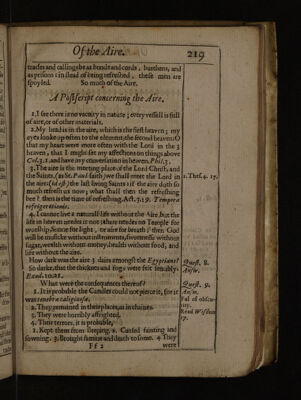 Of the Aire. 219
trades and callings be as bonds and cords, burthens, and
as prisons: instead of being refreshed, these men are
spoyled. So much of the Aire.
A Postscript concerning the Aire.
1. I see there is no vacuity in nature; every vessell is full
of aire, or of other materials.
2. My head is in the aire, which is the first heaven; my
eyes looke up often to the element, the second heaven: O
that my heart were more often with the Lord in the 3
heaven, that I might set my affections on things above
Col. 3. 1. and have my conversation in heaven, Phil. 3.
3. The aire is the meeting place of the Lord Christ, and
the Saints, (as be. Paul saith) we shall meet the Lord in
the aire (id est) the last living Saints: if the aire doth so
much refresh us now, what shall then the refreshing
bee? then is the time of refreshing. Act. 3. 19. Tempora
refrigerationis.
1. Thes. 4. 17.
4. I cannot live a naturall life without the Aire, but in the
life in heaven
worship, Sunne for light, or aire for breath? then God
will be musicke without instruments, sweetnesse without
sugar, wealth without money, health without food, and
life without the aire.
How dark was the aire 3 daies amongst the Egyptians?
So darke, that the thickets and fogs were felt sensibly.
Exod. 10. 21.
Quest. 8.
Answ.
What were the consequences thereof?
1. It is probable the Candles could not pierce it, for it
was tenebræ caliginosæ.
2. They remained in their places, as in chaines.
3. They were horribly affrighted.
4. Their terrors, it is probable,
1. Kept them from sleeping. 2. Caused fainting and
swowning. 3. Brought famine and death to some. 4 They
Quest. 9.
Answ.
Read Wisdom
17.
Ff 2 were